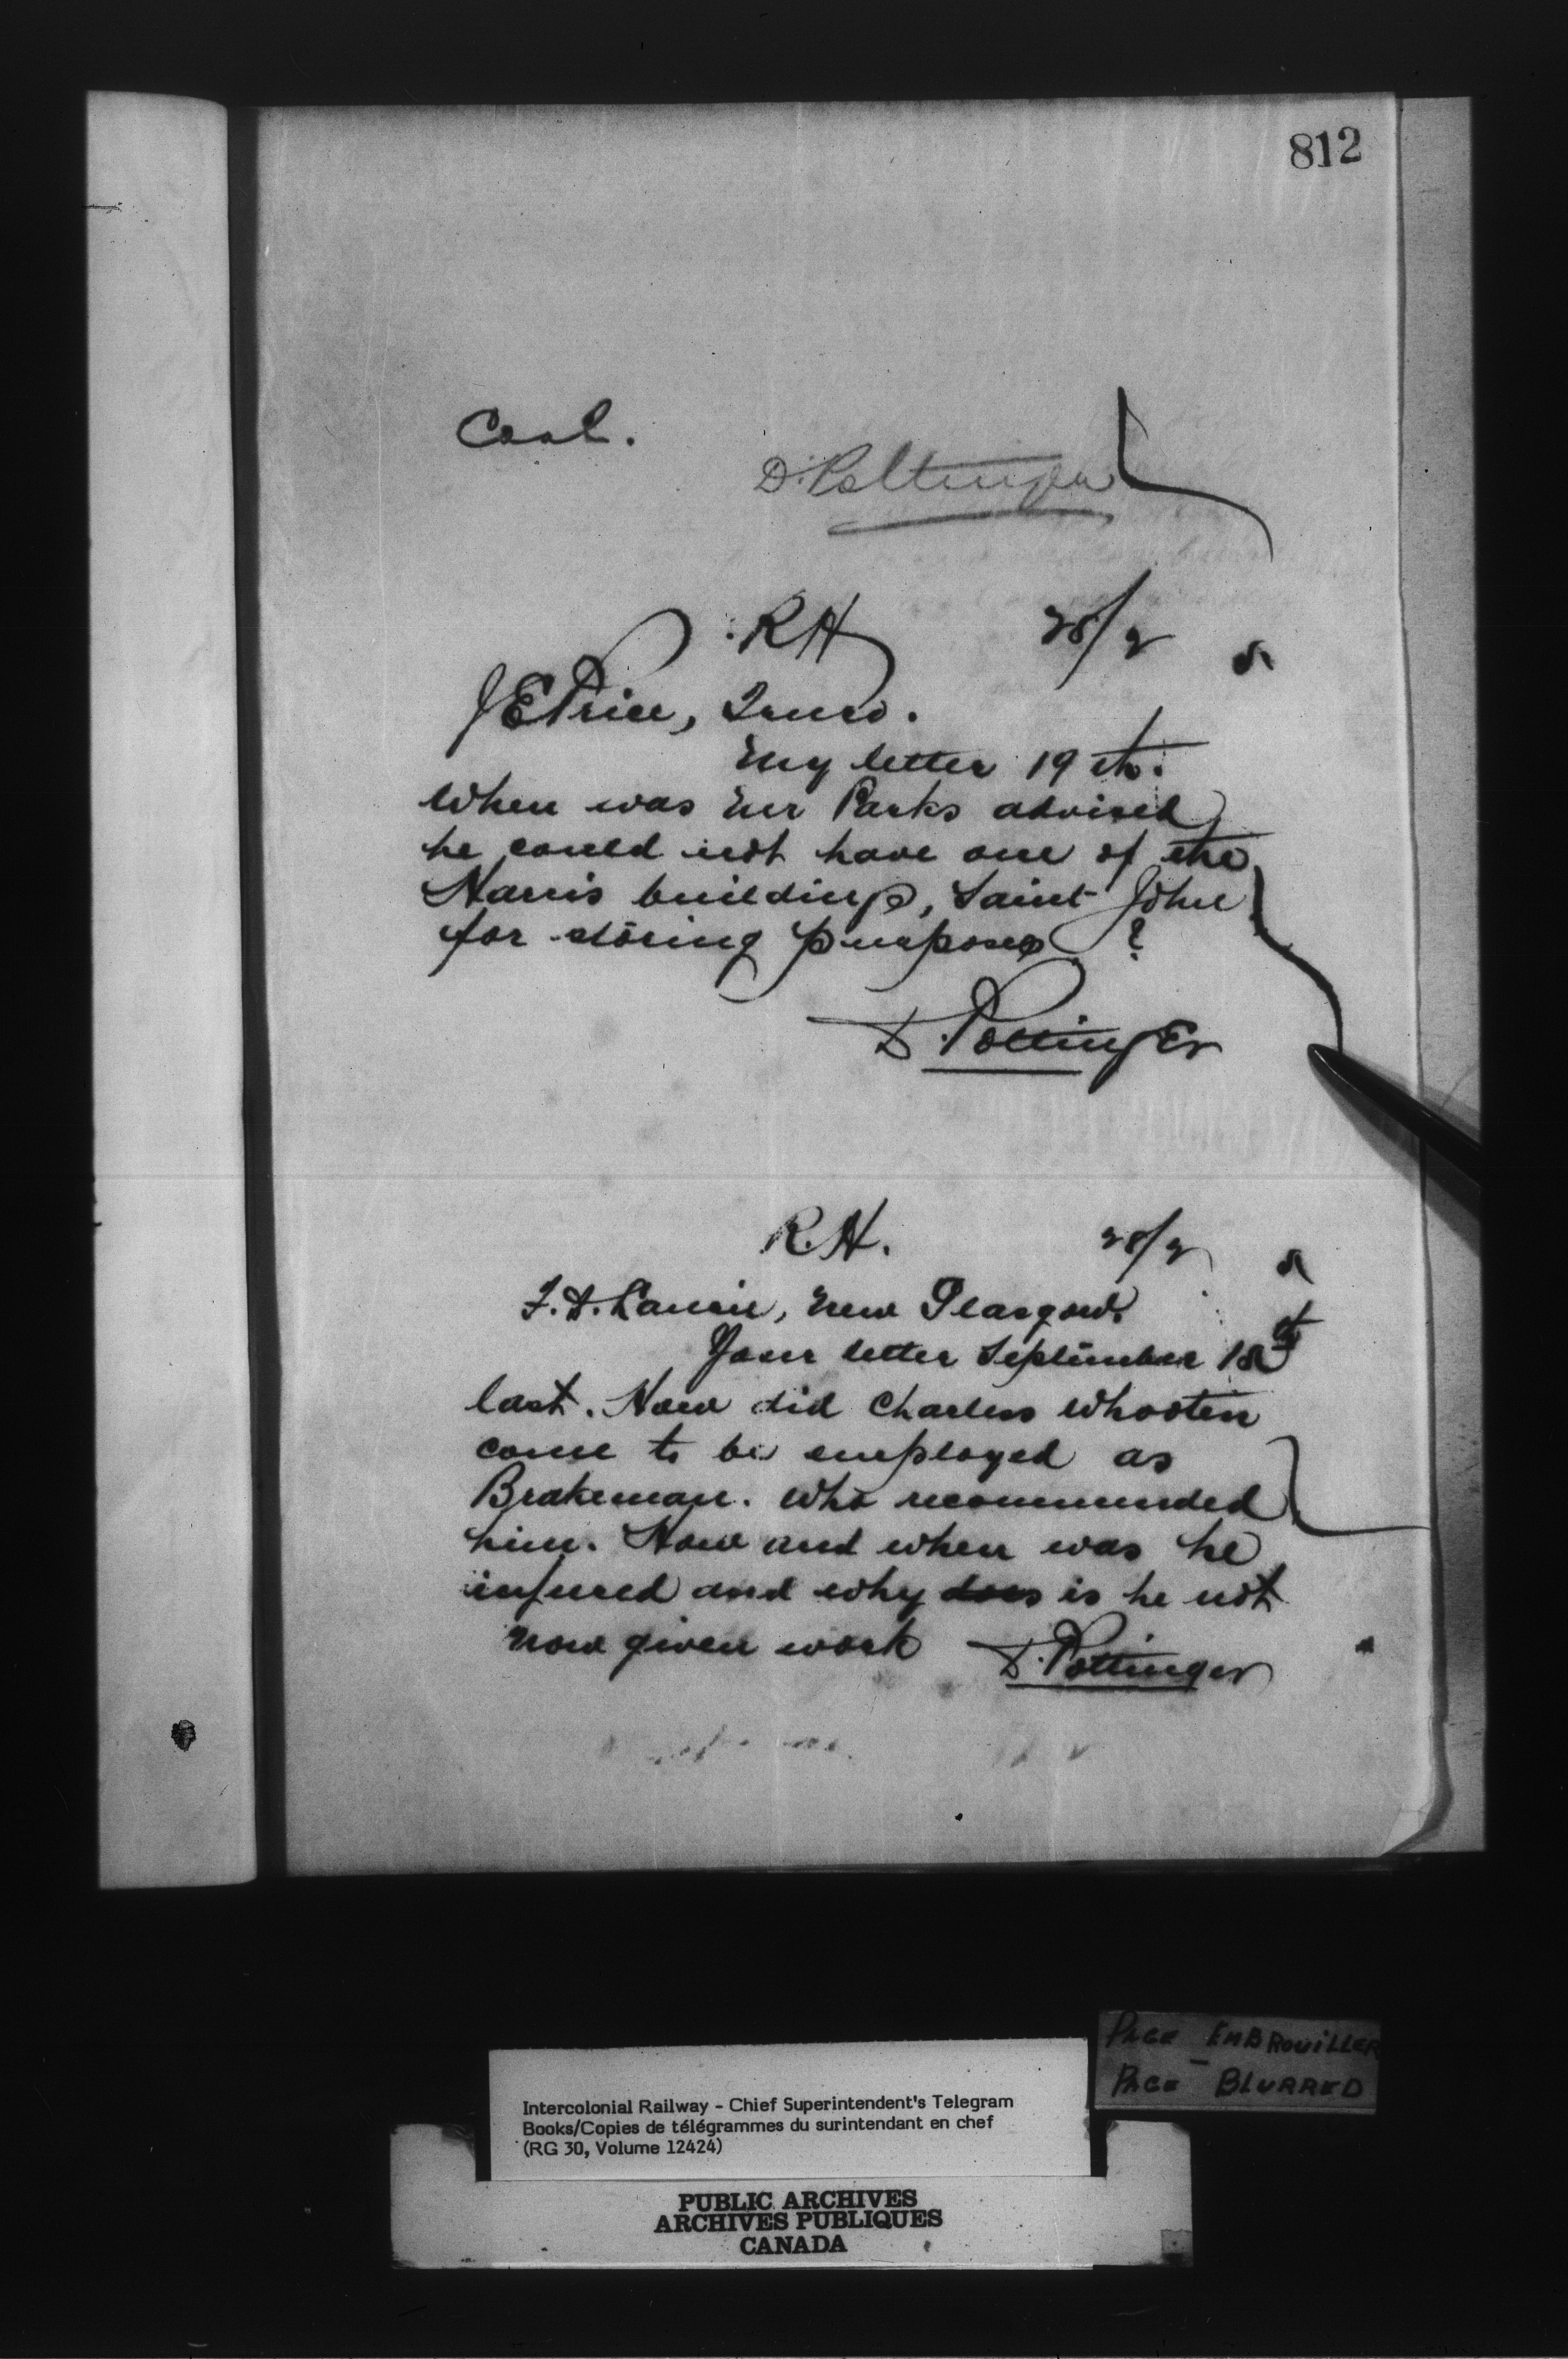 812
Coal.
D. Pottinger
RH 28/2
J E Price, Truro.
My letter 19th.
When was Mr Parks advised
he could not have one of the
Harris buildings, Saint John
for storing purposes?
D. Pottinger
R.H. 28/2
New Glasgow.
Your letter September 18th
last. How did Charles Whooten
come to be employed as
Brakeman. Who recommended
him. How and when was he
injured and why does is he not
now given work D. Pottinger
PAGE EMBROUILLER
PAGE BLURRED
Intercolonial Railway - Chief Superintendent's Telegram
Books/Copies de télégrammes du surintendant en chef
(RG 30, Volume 12424)
PUBLIC ARCHIVES
ARCHIVES PUBLIQUES
CANADA